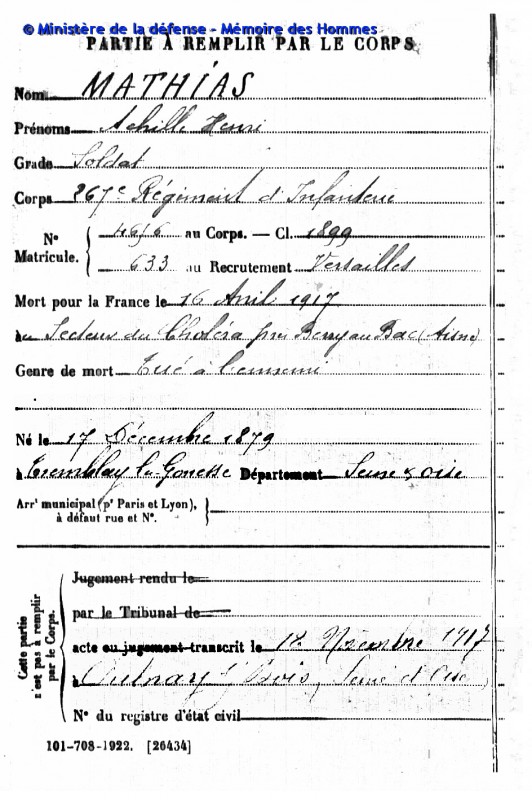 © Ministère de la défense - Mémoire des Hommes
PARTIE À REMPLIR PAR LE CORPS
Nom MATHIAS
Prénoms Achille Henri
Grade Soldat
Corps 267e Régiment d'Infanterie
No Matricule. 4656 au Corps. — Cl. 1899
633 au Recrutement Versailles
Mort pour la France le 16 Avril 1917
au Secteur du Choléra près Berry au Bac (Aisne)
Genre de mort Tué à l'ennemi
Né le 17 Décembre 1879
à Tremblay les Gonesse Département Seine & Oise
Arrt municipal (pr Paris et Lyon),
à défaut rue et No.
Cette partie n'est pas à remplir par le Corps.
Jugement rendu le
par le Tribunal de
acte ou jugement transcrit le 12 Novembre 1917
à Aulnay s/ Bois, Seine et Oise
No du registre d'état civil
101-708-1922. [26434]